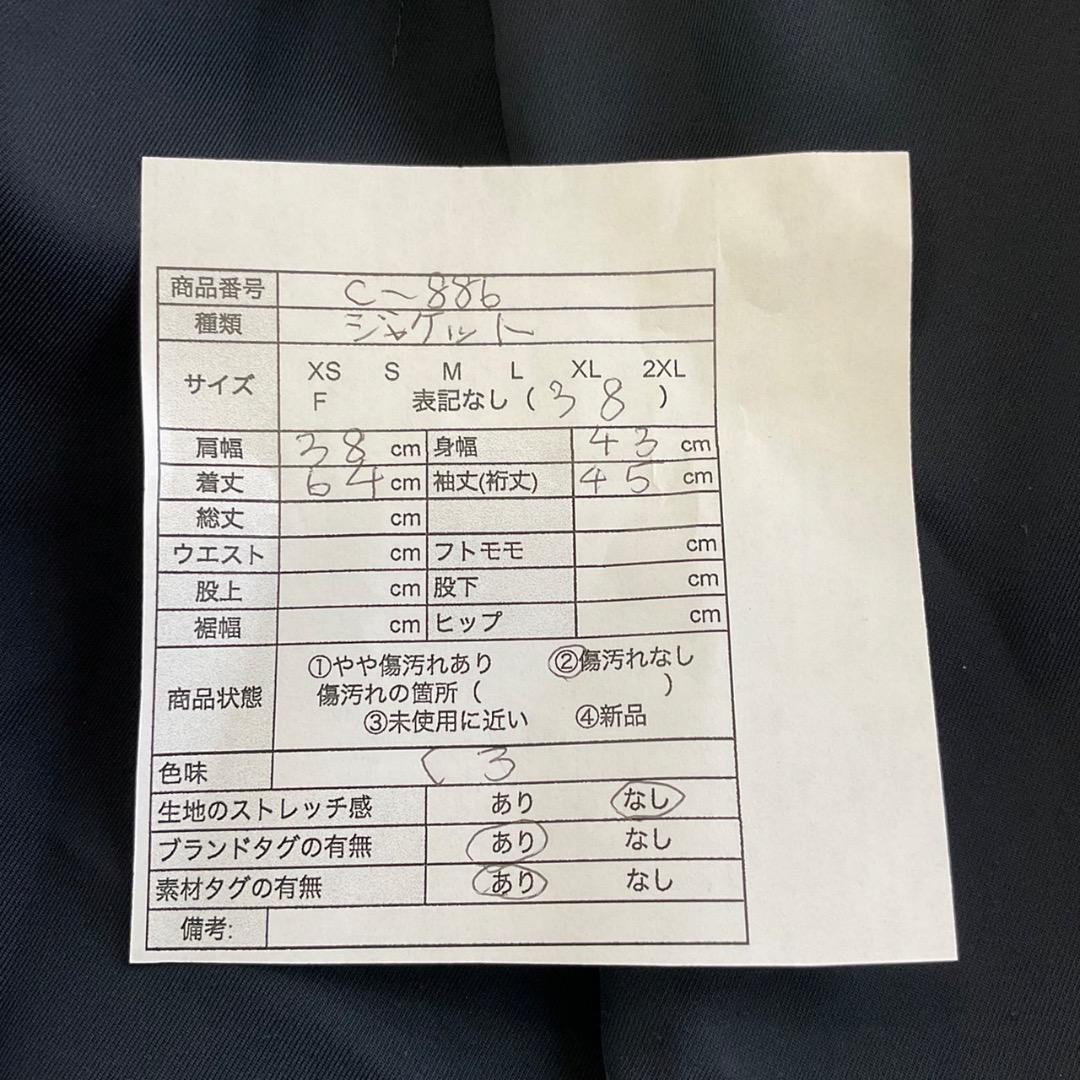 商品番号 C-886
種類 ジャケット
サイズ XS S M L XL 2XL
F 表記なし ( 38 )
肩幅 38 cm 身幅 43 cm
着丈 64 cm 袖丈(裄丈) 45 cm
総丈 cm
ウエスト cm フトモモ cm
股上 cm 股下 cm
裾幅 cm ヒップ cm
商品状態 ①やや傷汚れあり ②傷汚れなし
傷汚れの箇所 ( )
③未使用に近い ④新品
色味 3
生地のストレッチ感 あり なし
ブランドタグの有無 あり なし
素材タグの有無 あり なし
備考: